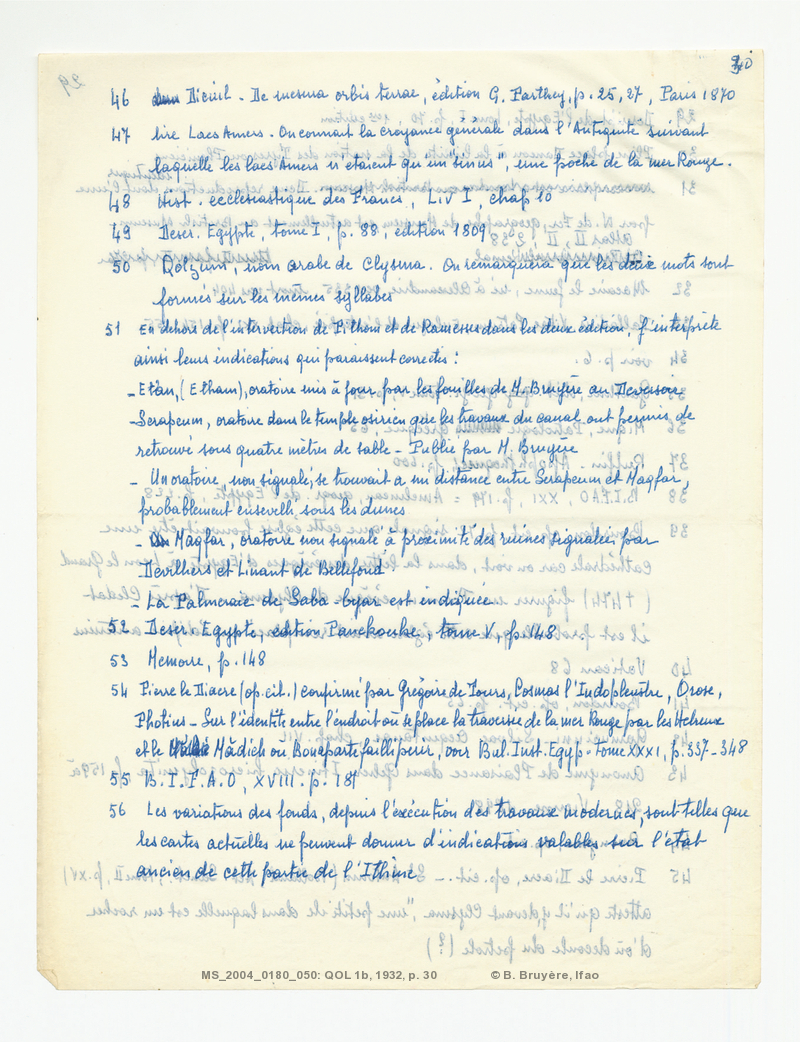 30
46 Dicuil - De mesura orbis terrae, édition G. Parthey, p. 25, 27, Paris 1870
47 lire Lacs Amers. On connait la croyance générale dans l'Antiquité suivant
laquelle les lacs Amers n'étaient qu'un "sinus", une poche de la mer Rouge.
48 Hist. ecclesiastique des Francs, Liv I, chap 10
49 Descr. Egypte, tome I, p. 88, édition 1809
50 Qolzum, nom arabe de Clysma. On remarquera que les deux mots sont
formés sur les mêmes syllabes
51 En dehors de l'intervertion de Pithom et de Ramesses dans les deux édition, j'interprète
ainsi leurs indications qui paraissent correctes :
- Etàn, (Etham), oratoire mis à jour par les fouilles de M. Bruyère au Deversoir
- Serapeum, oratoire dans le temple osirien que les travaux du canal ont permis de
retrouvé sous quatre mètres de sable - Publié par M. Bruyère
- Un oratoire, non signalé, se trouvait a mi distance entre Serapeum et Magfar,
probablement enseveli sous les dunes
- Magfar, oratoire non signalé à proximité des ruines signalées par
Devilliers et Linant de Bellefond
- La Palmeraie de Saba-byar est indiquée
52 Descr. Egypte, édition Panckoucke, tome V, p. 148
53 Memoire, p. 148
54 Pierre le Diacre (op. cit.) confirmé par Grégoire de Tours, Cosmas l'Indopleustre, Orose,
Photius - Sur l'identité entre l'endroit où se place la traversé de la mer Rouge par les Hebreux
et le Mâdieh où Bonaparte failli périr, voir Bul. Inst. Egyp. tome XXXI, p. 337-348
55 B.I.F.A.O, XVIII. p. 187
56 Les variations des fonds, depuis l'exécution des travaux modernes, sont telles que
les cartes actuelles ne peuvent donner d'indications valables sur l'état
ancien de cette partie de l'Isthme
MS_2004_0180_050: QOL 1b, 1932, p. 30 © B. Bruyère, Ifao